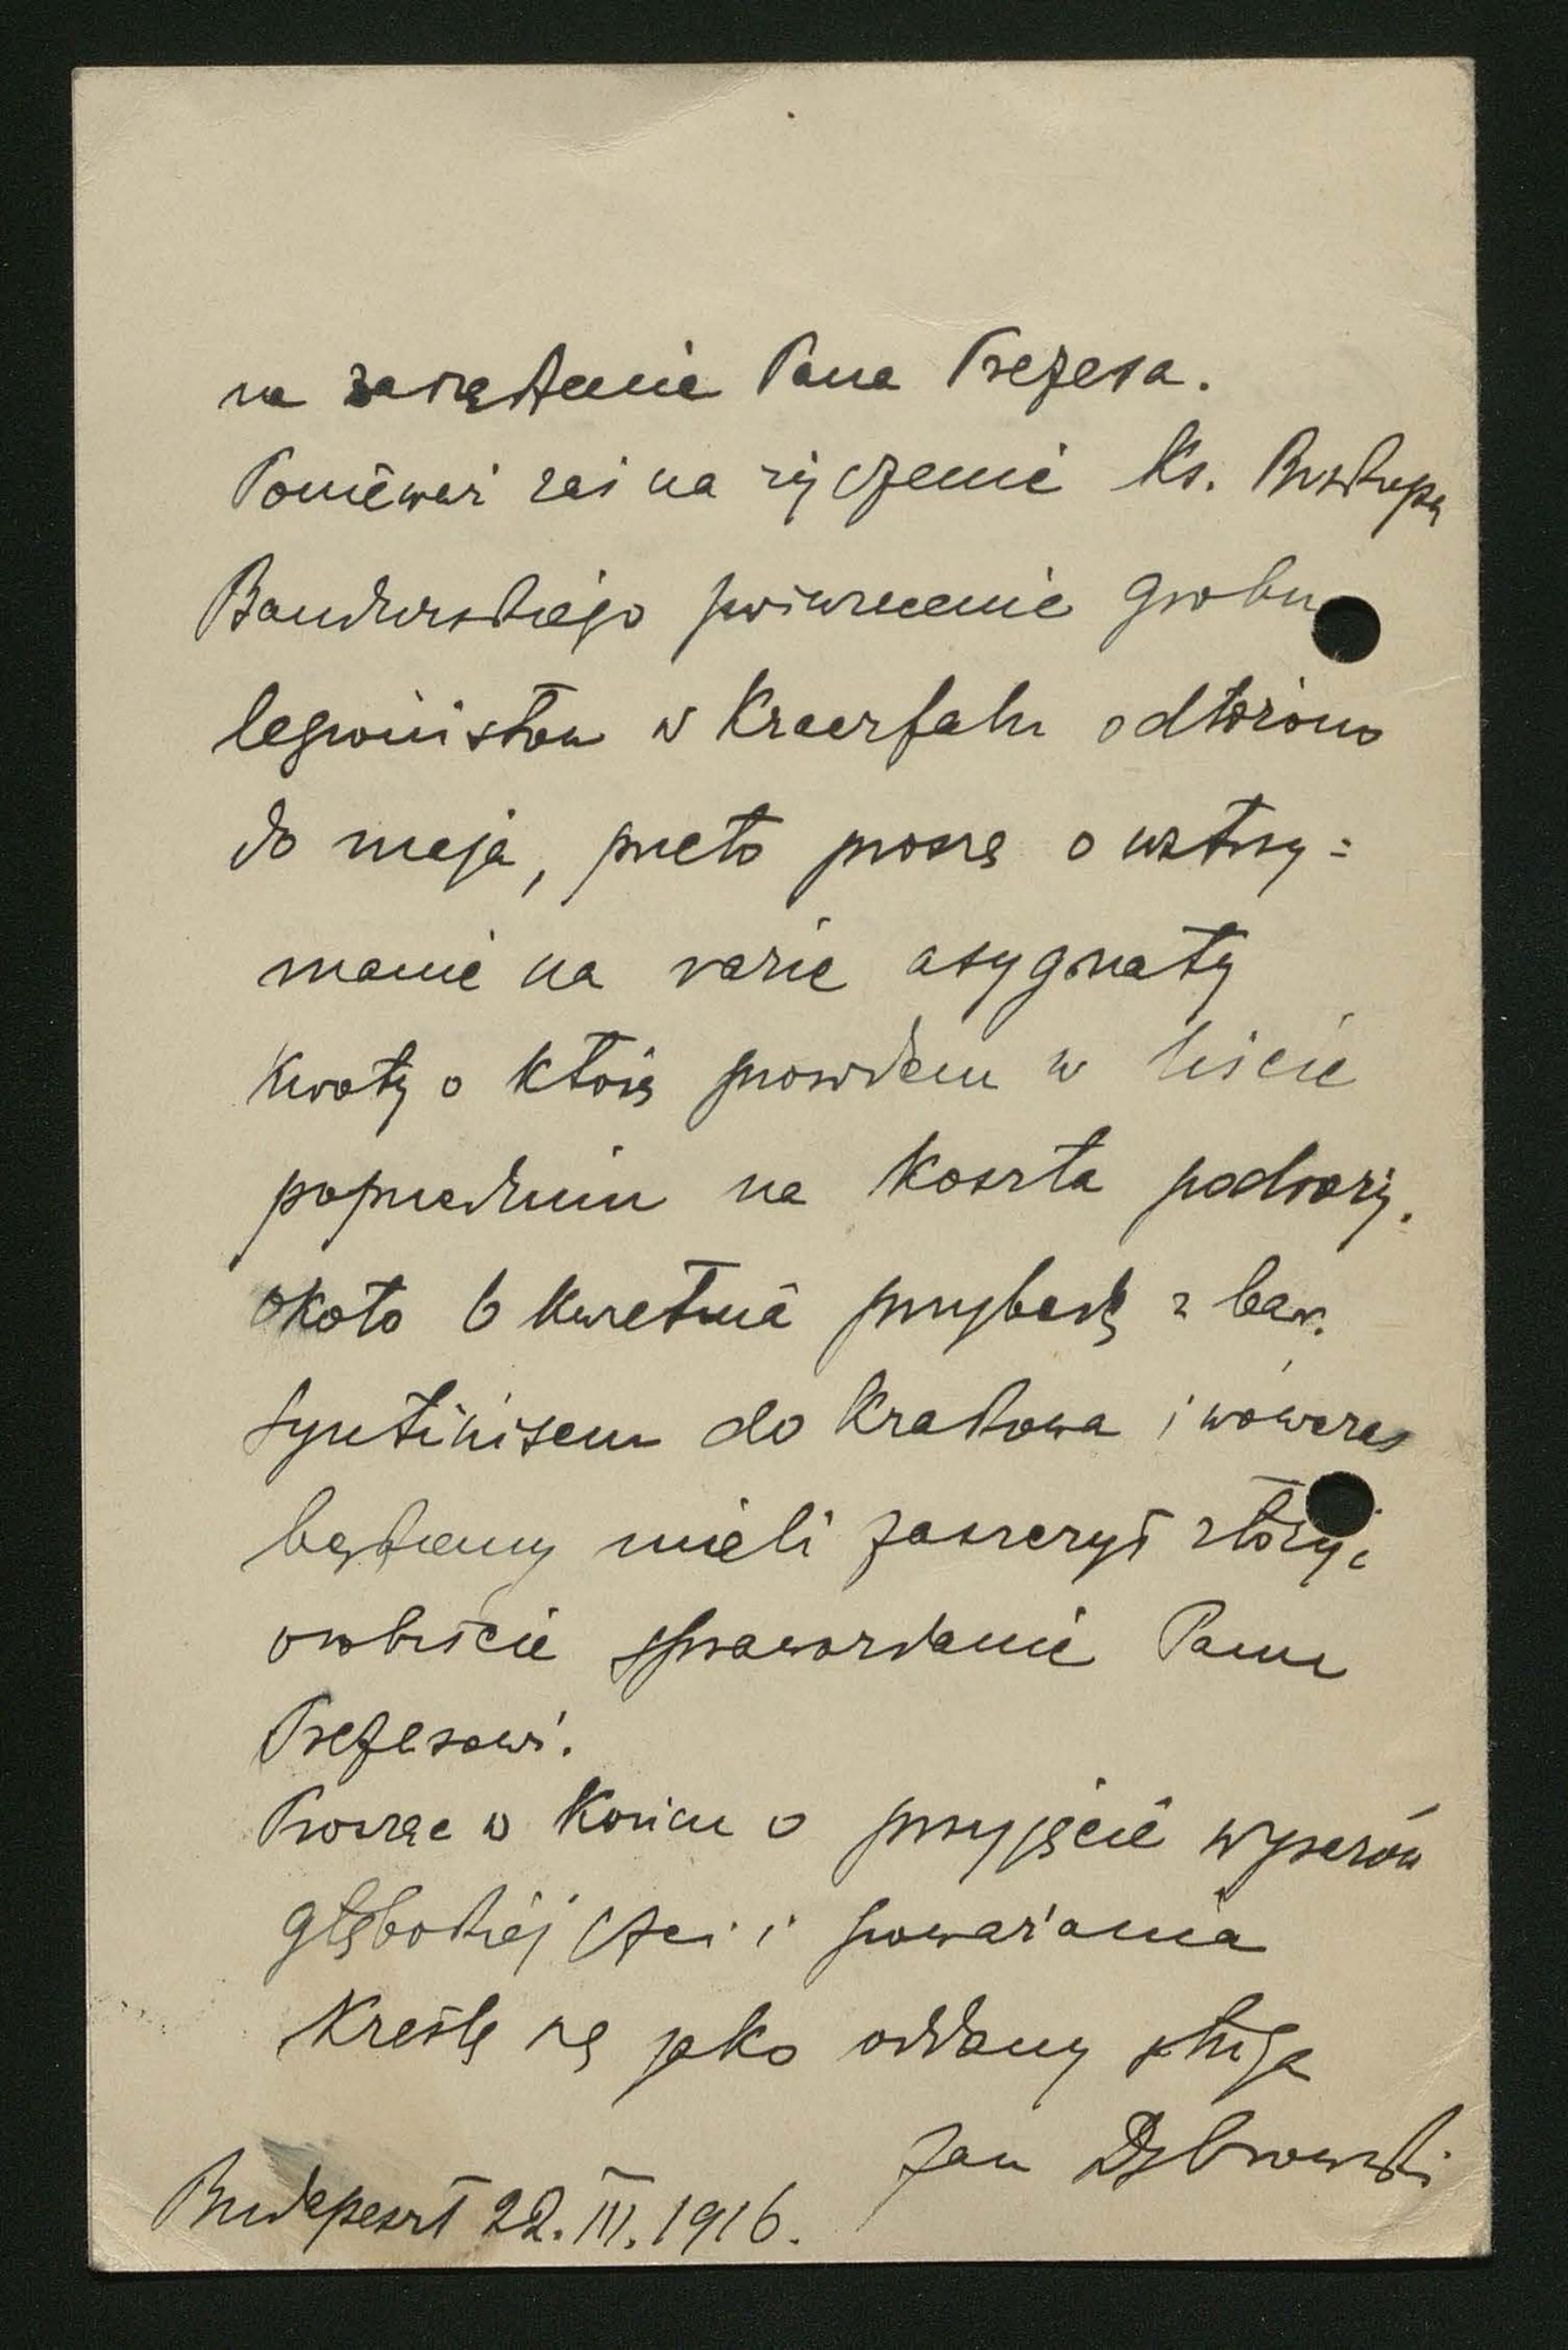 na zarządzenie Pana Prezesa.
Ponieważ zaś na życzenie Ks. Biskupa
Bandurskiego poświęcenie grobu
legionistów w odłożono
do maja, przeto proszę o wstrzy=
manie na razie asygnaty
kwoty o którą prosiłem w liście
poprzednim na koszta podróży.
około 6 kwietnia przybędę z bar.
Syntinisem do Krakowa i wówczas
będziemy mieli zaszczyt złożyć
osobiście sprawozdanie Panu
Prezesowi.
Prosząc w końcu o przyjęcie wyrazów
głębokiej czci i poważania
Kreślę się jako oddany sługa
Jan Dąbrowski
Budapeszt 22. III. 1916.